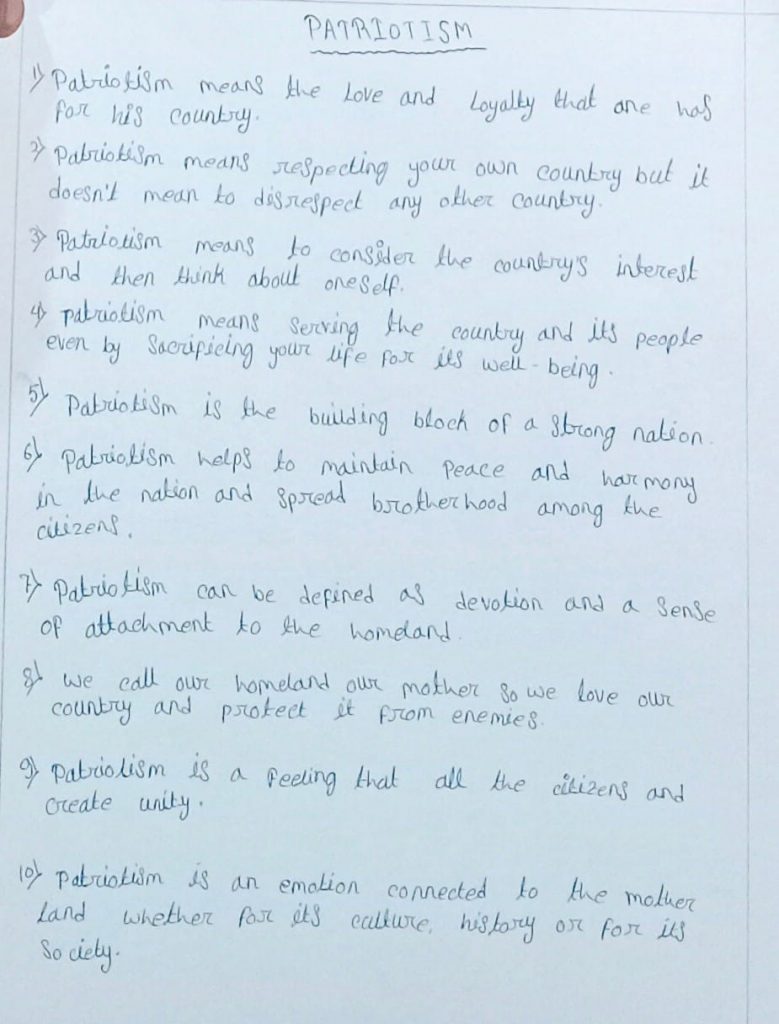 PATRIOTISM
1) Patriotism means the love and Loyalty that one has
for his country.
2) Patriotism means respecting your own country but it
doesn't mean to disrespect any other country.
3) Patriotism means to consider the country's interest
and then think about oneself.
4) patriotism means serving the country and its people
even by sacrificing your life for its well-being.
5) Patriotism is the building block of a strong nation.
6) Patriotism helps to maintain peace and harmony
in the nation and spread brotherhood among the
citizens.
7) Patriotism can be defined as devotion and a sense
of attachment to the homeland.
8) we call our homeland our mother so we love our
country and protect it from enemies.
9) Patriotism is a feeling that all the citizens and
create unity.
10) Patriotism is an emotion connected to the mother
land whether for its culture, history or for its
society.